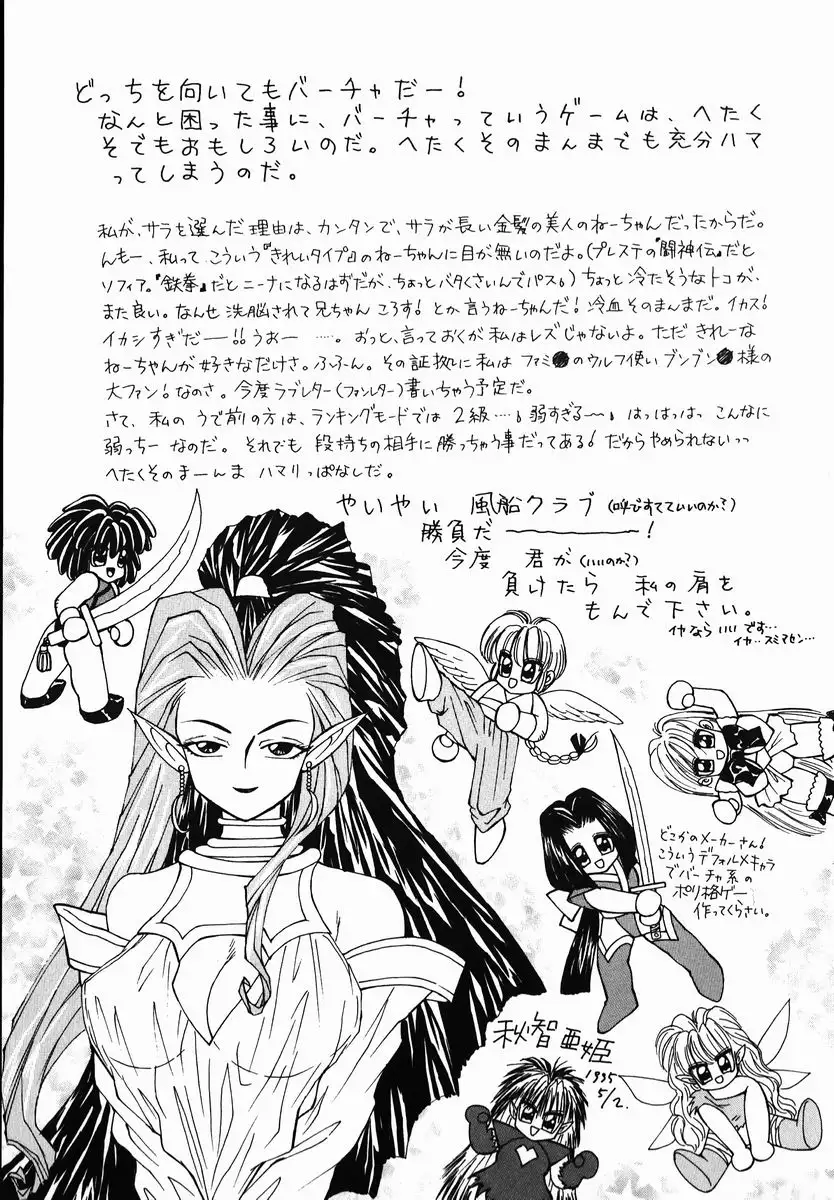 どっちを向いてもバーチャだー!
なんと困った事に、バーチャっていうゲームは、へたく
そでもおもしろいのだ。へたくそのまんまでも充分ハマ
ってしまうのだ。
私が、サラを選んだ理由は、カンタンで、サラが長い金髪の美人のねーちゃんだったからだ。
んもー、私ってこういう『きれいタイプ』のねーちゃんに目が無いのだよ。(プレステの『闘神伝』だと
ソフィア。『鉄拳』だとニーナになるはずだが、ちょっとバタくさいんでパス。)ちょっと冷たそうなトコが、
また良い。なんせ洗脳されて兄ちゃんころす!とか言うねーちゃんだ!冷血そのまんまだ。イカス!
イカシすぎだー!!うおー……。おっと、言っておくが私はレズじゃないよ。ただきれーな
ねーちゃんが好きなだけさ。ふふーん。その証拠に私はファミ●のウルフ使いブンブン●様の
大ファン!なのさ。今度ラブレター(ファンレター)書いちゃう予定だ。
さて、私のうで前の方は、ランキングモードでは2級……。弱すぎる〜〜。はっはっはっこんなに
弱っちーなのだ。それでも段持ちの相手に勝っちゃう事だってある!だからやめられないっっ
へたくそのまーんまハマりっぱなしだ。
やいやい 風船クラブ(呼びすてていいのか?)
勝負だ――――!
今度 君が(いいのか?)
負けたら 私の肩を
もんで下さい。
イヤならいいです…
イヤ…スミマセン…
どこかのメーカーさん!
こういうデフォルメキャラ
でバーチャ系の
ポリ格ゲー
作ってくらさい。
秋智亜姫
1995
5/2.